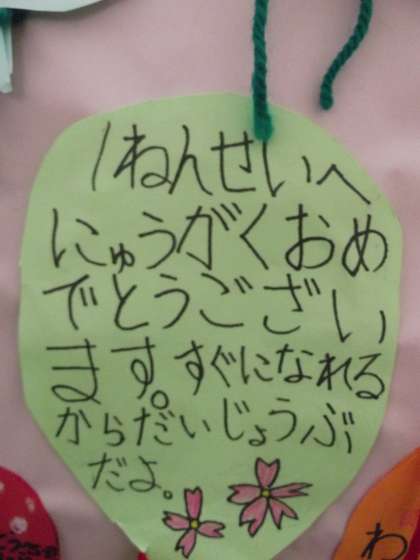 1ねんせいへ
にゅうがくおめ
でとうござい
ます。すぐになれる
からだいじょうぶ
だよ。
わ